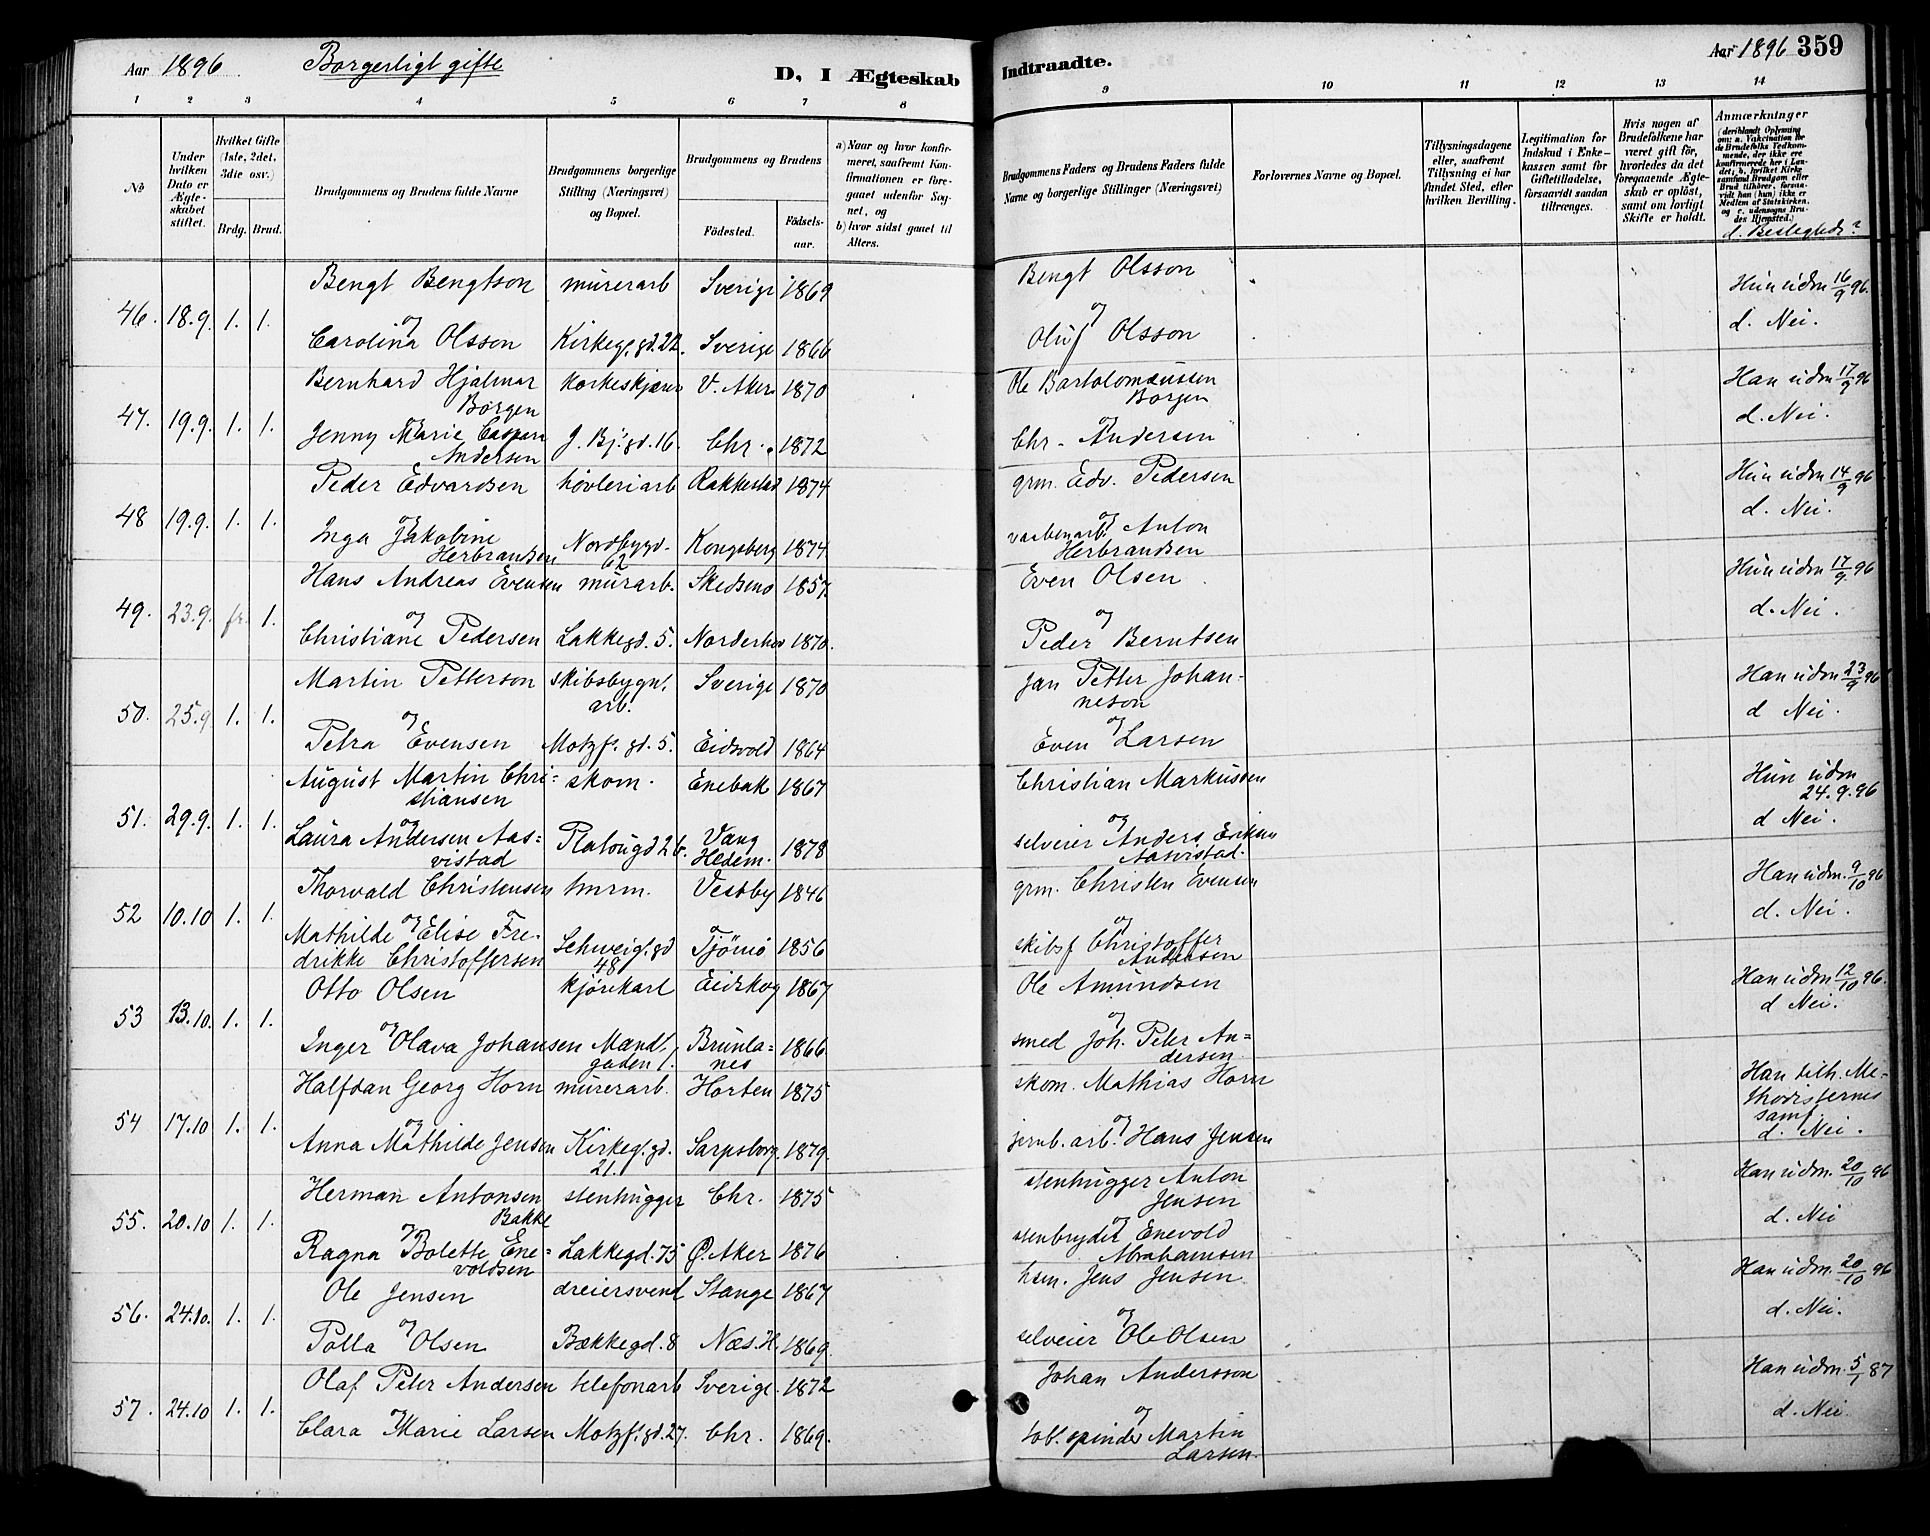 Aar 1896. Borgerligt gifte D, I Ægteskab
Indtraadte. Aar 1896 359
1 2 3 4 5 6 7 8
9 10 11 12 13 14
No
Under hvilken Dato er Ægteskabet stiftet.
Hvilket Gifte (1ste, 2det, 3die osv.)
Brdg. Brud.
Brudgommens og Brudens fulde Navne
Brudgommens borgerlige Stilling (Næringsvei) og Bopæl.
Brudgommens og Brudens
Födested. Födselsaar.
a) Naar og hvor konfirmeret, saafremt Konfirmationen er foregaaet udenfor Sognet, og
b) hvor sidst gaaet til Alters.
Brudgommens Faders og Brudens Faders fulde Navne og borgerlige Stillinger (Næringsvei)
Forlovernes Navne og Bopæl.
Tillysningsdagene eller, saafremt Tillysning ei har fundet Sted, efter hvilken Bevilling.
Legitimation for Indskud i Enkekassen samt for Giftetilladelse, forsaavidt saadan tiltrænges.
Hvis nogen af Brudefolkene har været gift för, hvorledes da det foregaaende Ægteskab er oplöst, samt om lovligt Skifte er holdt.
Anmærkninger
(deriblandt Oplysning om: a. Vakcination for de Brudefolks Vedkommende, der ikke ere konfirmerede her i Landet; b. hvilket Kirkesamfund Brudgom eller Brud tilhörer, forsaavidt han (hun) ikke er Medlem af Statskirken, og c. udensogns Brudes Hjemsted.)
d. Beslegtede?
46. 18.9. 1. 1. Bengt Bengtson murerarb Sverige 1869 Bengt Olsson Hun udm 16/9 96.
og og d. Nei.
Carolina Olsson Kirkeg. gd. 22. Sverige 1866 Oluf Olsson
47. 19.9. 1. 1. Bernhard Hjalmar Borgen korkeskjærer V. Aker 1870 Ole Bartolomæussen Borgen Han udm 17/9 96
og og d. Nei.
Jenny Marie Caspara Andersen J. Bj. gd. 16. Chr. 1872 Chr. Andersen
48 19.9. 1. 1. Peder Edvardsen høvleriarb Rakkestad 1874 grm. Edv. Pedersen Hun udm 14/9 96
og og d. Nei.
Inga Jakobine Herbrandsen Nordbygd. 62 Kongsberg 1874 vaabenarb. Anton Herbrandsen
49. 23.9. fr. 1. Hans Andreas Evensen murarb. Skedsmo 1857. Even Olsen Hun udm 17/9 96
og og d. Nei.
Christiane Pedersen Lakkegd. 5. Norderhov 1870. Peder Berntsen
50. 25.9 1. 1. Martin Petterson skibsbygn. arb. Sverige 1870 Jan Petter Johanneson Han udm 23/9 96
og og d Nei.
Petra Evensen Motzf. gd. 5. Eidsvold 1864 Even Larsen
51. 29.9. 1. 1. August Martin Christiansen skom. Enebak 1867 Christian Markussen Hun udm 24.9.96
og og d Nei.
Laura Andersen Aasvistad Platougd 26. Vang Hedem. 1878 selveier Anders Eriksen Aasvistad.
52 10.10 1. 1. Thorvald Christensen tmrm. Vestby 1846 grm. Christen Evensen Han udm. 9/10 96
og og d. Nei.
Mathilde Elise Fredrikke Christoffersen Schweig. gd 48 Tjömö 1856 skibsf Christoffer Andersen
53 13.10. 1. 1. Otto Olsen kjörekarl Eidskog 1867 Ole Amundsen Han udm 12/10 96.
og og d Nei.
Inger Olava Johansen Mandl. gaden 1. Brunlanes 1866. smed Joh. Peter Andersen
54 17.10 1. 1. Halfdan Georg Horn murerarb. Horten 1875 skom. Mathias Horn Han tilh. Methodisternes samf.
og og d. Nei.
Anna Mathilde Jensen Kirkeg. gd. 21. Sarpsborg. 1879. jernb. arb. Hans Jensen
55. 20.10 1. 1. Herman Antonsen Bakke stenhugger Chr. 1875 stenhugger Anton Jensen Han udm. 20/10 96
og og d. Nei
Ragna Bolette Enevoldsen Lakkegd. 75 Ø. Aker 1876 stenbryder Enevold Abrahamsen
56. 24.10. 1. 1. Ole Jensen dreiersvend Stange 1867 hsm. Jens Jensen Han udm. 20/10 96
og og d. Nei.
Polla Olsen Bækkegd. 8 Næs. H. 1869. selveier Ole Olsen
57. 24.10 1. 1. Olaf Peter Andersen telefonarb Sverige. 1872 Johan Andersson Han udm. 5/1 87
og og d. Nei.
Clara Marie Larsen Motzf. gd. 27. Chr. 1869. tob. spinder Martin Larsen.